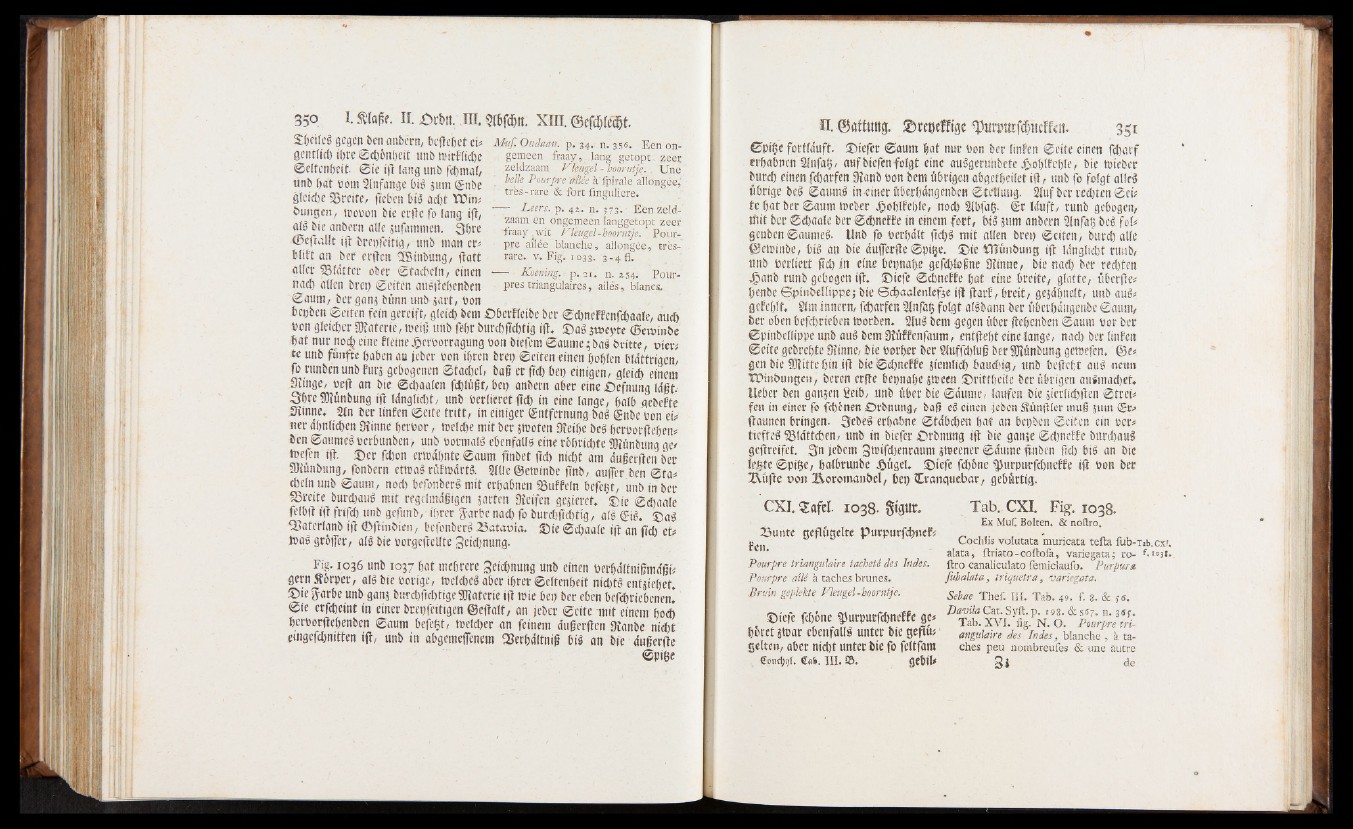 350 I. Klaße. II. Ordn. III. Abschn. XIII. Geschlecht.
Theiles gegen den andern, bestehet ei-
gentlich ihre Schönheit und wirkliche
Seltenheit. Sie ist lang und schmal,
und hat vom Anfange bis zum Ende
gleiche Breite, sieben bis acht Win-
dungen, wovon die erste so lang ist,
als die andern alle zusammen. Ihre
Gestallt ist dreyseitig, und man er-
blikt an der ersten Windung, statt
aller Blätter oder Stacheln, einen
nach allen drey Seiten ausstehenden
Saum, der ganz dünn und zart, von
Mus. Oudaan. p. 34. n. 356. Een on-
gemeen fraay, lang getopt zeer
zeldzaam Vleugel-hoorntje. Une
belle Pourpre ailée à spirale allongée,
très-rare & fort singuliere.
— Leers. p. 42. n. 373. Een zeld-
zaam en ongemeen langgetopt zeer
fraay wit Vleugel-hoorntje. Pour-
pre ailée blanche, allongée, très-
rare. v. Fig. 1033. 3-4 fl.
— Koening. p. 21. n. 254. Pour-
pres triangulaires, ailés, blancs.
beyden Seiten fein gereift, gleich dem Oberkleide der Schnekkenschaale, auch
von gleicher Materie, weiß und sehr durchsichtig ist. Das zweyte Gewinde
hat nur noch eine kleine Hervorragung von diesem Saume; das dritte, vier-
te und fünfte haben an jeder von ihren drey Seiten einen hohlen blättrigen,
so runden und kurz gebogenen Stachel, daß er sich bey einigen, gleich einem
Ringe, vest an die Schaalen schlüßt, bey andern aber eine Oefnung läßt.
Ihre Mündung ist länglicht, und verlieret sich in eine lange, halb gedekte
Rinne. An der linken Seite tritt, in einiger Entfernung das Ende von ei-
ner ähnlichen Rinne hervor, welche mit der zwoten Reihe des hervorstehen-
den Saumes verbunden, und vormals ebenfalls eine röhrichte Mündung ge-
wesen ist. Der schon erwähnte Saum findet sich nicht am äußersten der
Mündung, sondern etwas rükwärts. Alle Gewinde sind, ausser den Sta-
cheln und Saum, noch besonders mit erhabnen Bukkeln besetzt, und in der
Breite durchaus mit regelmäßigen zarten Reifen gezieret. Die Schaale
selbst ist frisch und gesund, ihrer Farbe nach so durchsichtig, als Eis. Das
Vaterland ist Ostindien, besonders Batavia. Die Schaale ist an sich et-
was grösser, als die vorgestellte Zeichnung.
Fig. 1036 und 1037 hat mehrere Zeichnung und einen verhältnißmäßi-
gern Körper, als die vorige, welches aber ihrer Seltenheit nichts entziehet.
Die Farbe und ganz durchsichtige Materie ist wie bey der eben beschriebenen.
Sie erscheint in einer dreyseitigen Gestalt, an jeder Seite mit einem hoch
hervorstehenden Saum besetzt, welcher an seinem äußersten Rande nicht
eingeschnitten ist, und in abgemessenem Verhältniß bis an die äußerste
Spitze
II. Gattung. Dreyekkige Purpurschnekken. 351
Spitze fortläuft. Dieser Saum hat nur von der linken Seite einen scharf
erhabnen Ansatz, auf diesen folgt eine ausgerundete Hohlkehle, die wieder
durch einen scharfen Rand von dem übrigen abgetheilet ist, und so folgt alles
übrige des Saums in einer überhängenden Stellung. Auf der rechten Sei-
te hat der Saum weder Hohlkehle, noch Absatz. Er läuft, rund gebogen,
mit der Schaale der Schnekke in einem fort, bis zum andern Ansatz des fol-
genden Saumes. Und so verhält sichs mit allen drey Seiten, durch alle
Gewinde, bis an die äusserste Spitze. Die Mündung ist länglicht rund,
und verliert sich in eine beynahe geschloßne Rinne, die nach der rechten
Hand rund gebogen ist. Diese Schnekke hat eine breite, glatte, überste-
hende Spindellippe; die Schaalenlefze ist stark, breit, gezähnelt, und aus-
gekehlt. Am innern, scharfen Ansatz folgt alsdann der überhängende Saum,
der oben beschrieben worden. Aus dem gegen über stehenden Saum vor der
Spindellippe und aus dem Rükkensaum, entsteht eine lange, nach der linken
Seite gedrehte Rinne, die vorher der Aufschluß der Mündung gewesen. Ge-
gen die Mitte hin ist die Schnekke ziemlich bauchig, und besteht aus neun
Windungen, deren erste beynahe zween Drittheile der übrigen ausmachet.
Ueber den ganzen Leib, und über die Säume, laufen die zierlichsten Strei-
fen in einer so schönen Ordnung, daß es einen jeden Künstler muß zum Er-
staunen bringen. Jedes erhabne Stäbchen hat an beyden Seiten ein ver-
tieftes Blättchen, und in dieser Ordnung ist die ganze Schnekke durchaus
gestreifet. In jedem Zwischenraum zweener Säume finden sich bis an die
letzte Spitze, halbrunde Hügel. Diese schöne Purpurschnekke ist von der
Küste von Koromandel, bey Tranquebar, gebürtig.
CXI. Tafel. 1038. Figur.
Bunte geflügelte Purpurschnek-
ken.
Pourpre triangulaire tacheté des Indes.
Pourpre ailé à taches brunes.
Bruin geplekte Vleugel-hoorntje.
Diese schöne Purpurschnekke ge-
höret zwar ebenfalls unter die geflü-
gelten, aber nicht unter die so seltsam
Conchyl. Cab. III. B. gebil-
Tab. CXI. Fig. 1038.
Ex Mus. Bolten. & nostro.
Cochlis volutata muricata testa sub-
alata, striato-costosa, variegata; ro-
stro canaliculato semiclauso. Purpura
subalata, triquetra, variegata.
Tab. CXI.
f. 1038.
Sebae Thes. III. Tab. 49. f. 8. & 56.
Davila Cat. Syst. p. 198. & 567. n. 365.
Tab. XVI. fig. N. O. Pourpre tri-
angulaire des Indes, blanche, à ta-
ches peu nombreuses & une autre
Zz de